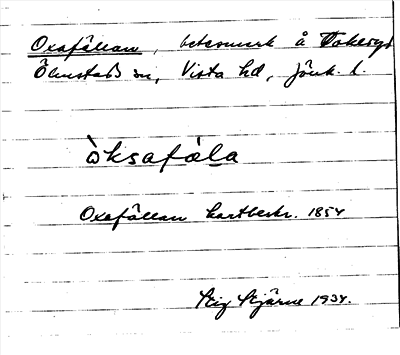 Oxafällan, betesmark å Tokeryd
Ölmstads sn, Vista hd, Jönk. l.
òksafäla
Oxafällan kartbeskr. 1854
Stig Stjärne 1934.